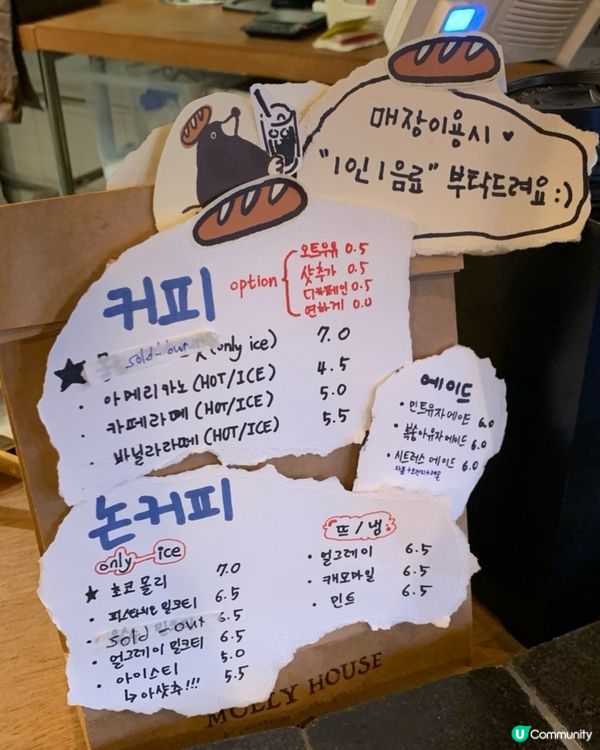 매장이용시 ♥
"1인 1음료" 부탁드려요 :)
커피
option
오트우유 0.5
샷추가 0.5
디카페인 0.5
연하게 0.0
★ sold-out (only ice) 7.0
· 아메리카노 (HOT/ICE) 4.5
· 카페라떼 (HOT/ICE) 5.0
· 바닐라라떼 (HOT/ICE) 5.5
에이드
· 민트유자에이드 6.0
· 복숭아유자에이드 6.0
· 시트러스에이드 6.0
논커피
only ice
★ 초코몰리 7.0
· 피스타치오 밀크티 6.5
· sold-out 6.5
· 얼그레이 밀크티 6.5
· 아이스티 5.0
↳ 아샷추!!! 5.5
뜨/냉
· 얼그레이 6.5
· 캐모마일 6.5
· 민트 6.5
MOLLY HOUSE
U Community